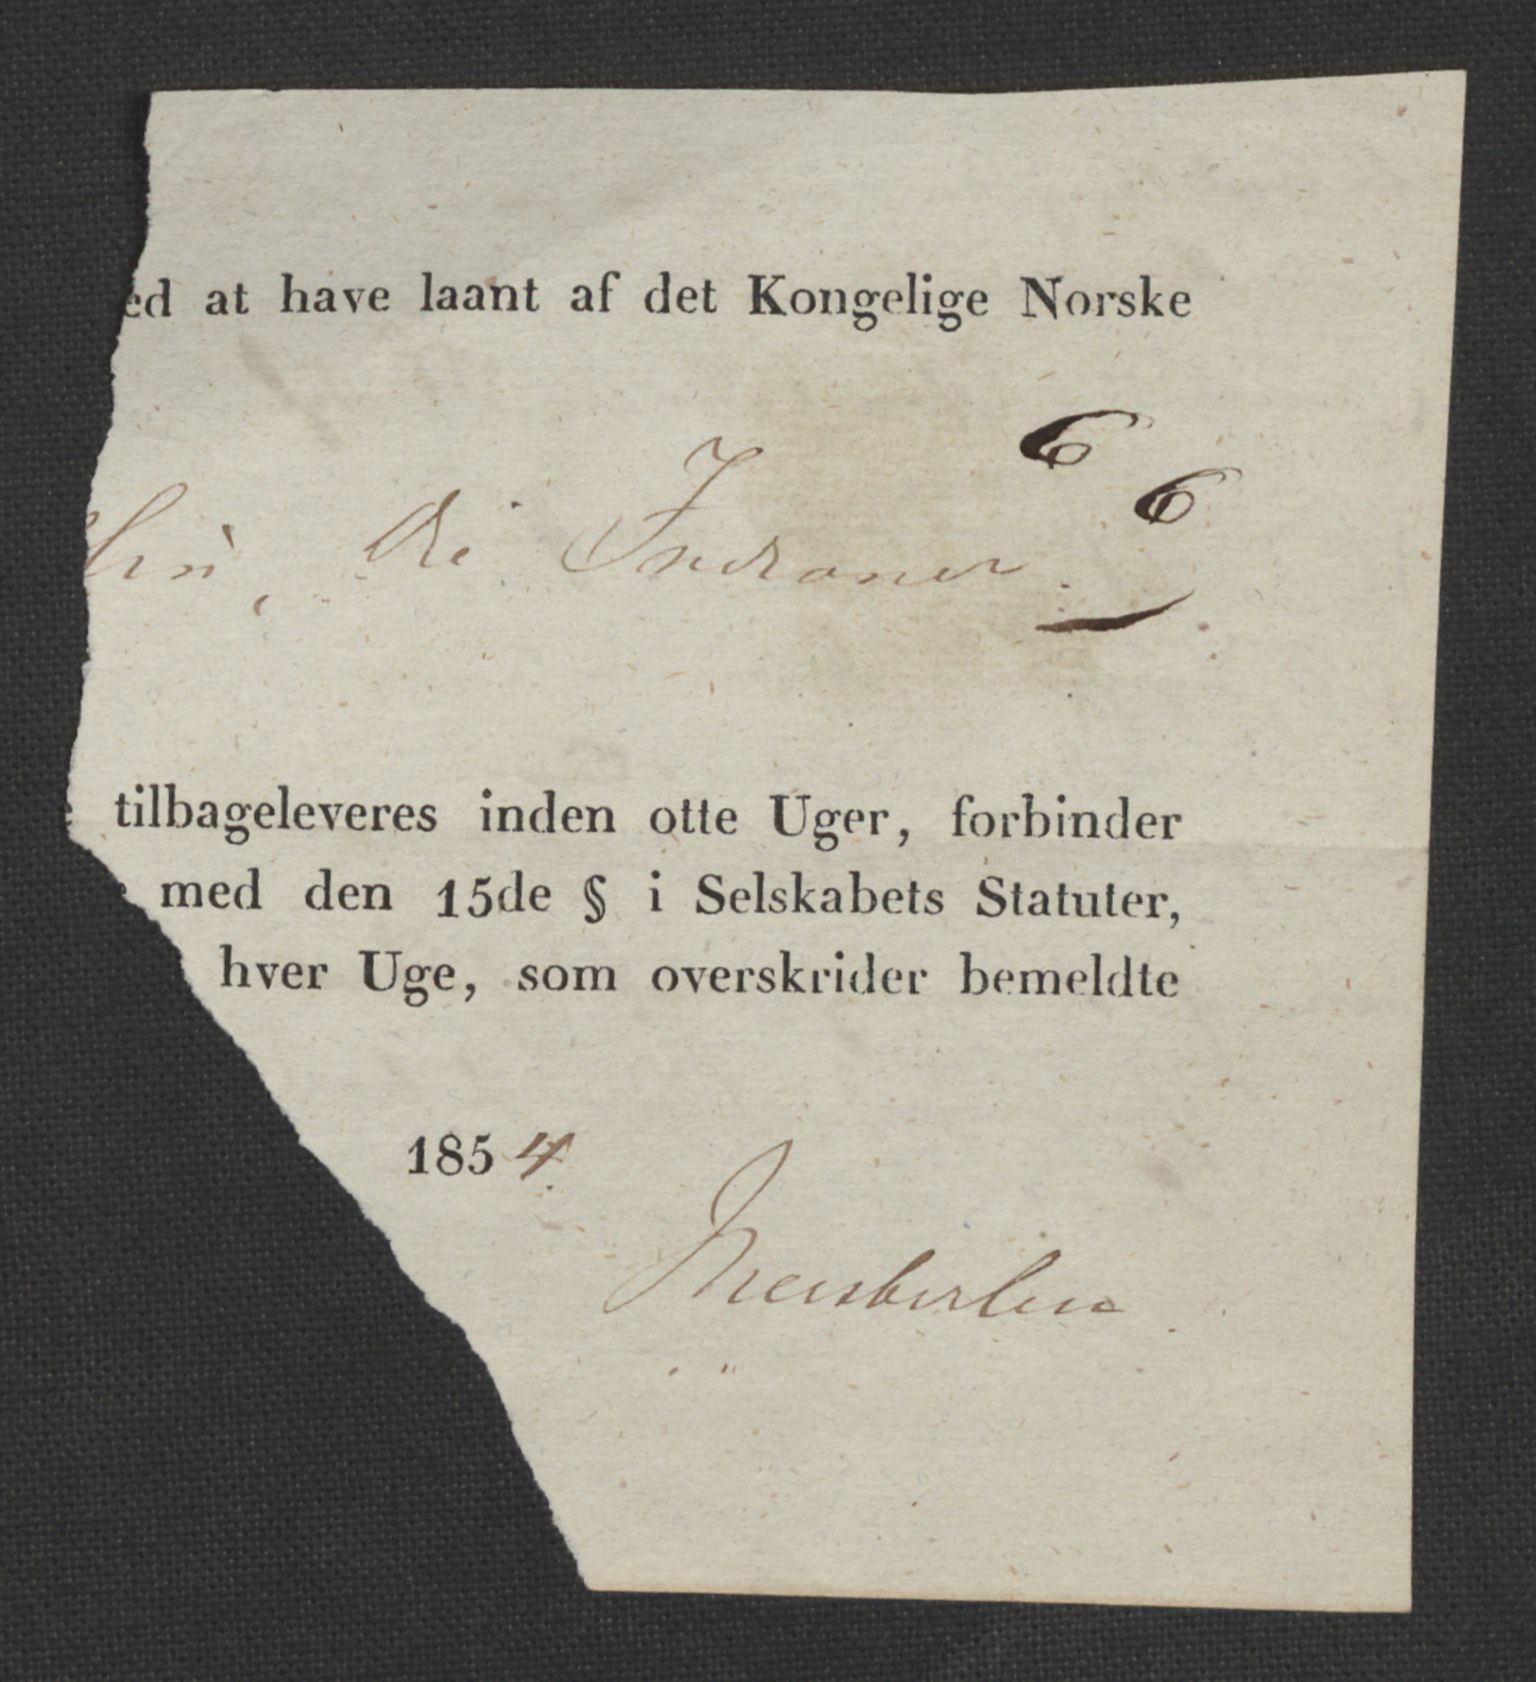 ed at have laant af det Kongelige Norske
6
6
tilbageleveres inden otte Uger, forbinder
med den 15de § i Selskabets Statuter,
hver Uge, som overskrider bemeldte
1854.